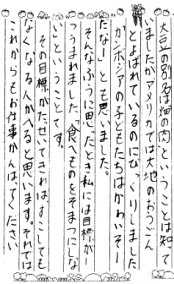 大豆の別名は畑の肉ということは知って
いましたがアメリカでは大地のおうごん
とよばれているのにびっくりしました
カンボジアの子どもたちはかわいそー
だなーとも思いました。
そんなふうに思ったとき私には目標が
うつまれました「食べものをそまつにしな
いということです。
その目標がたっせいできればすこしでも
よくなる人がふえると思います。それでは
これからもお仕事がんばってください